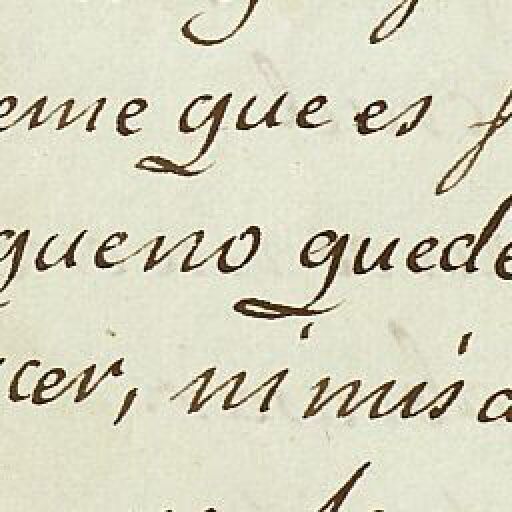 eme que es
queno quede
cer, ni mis